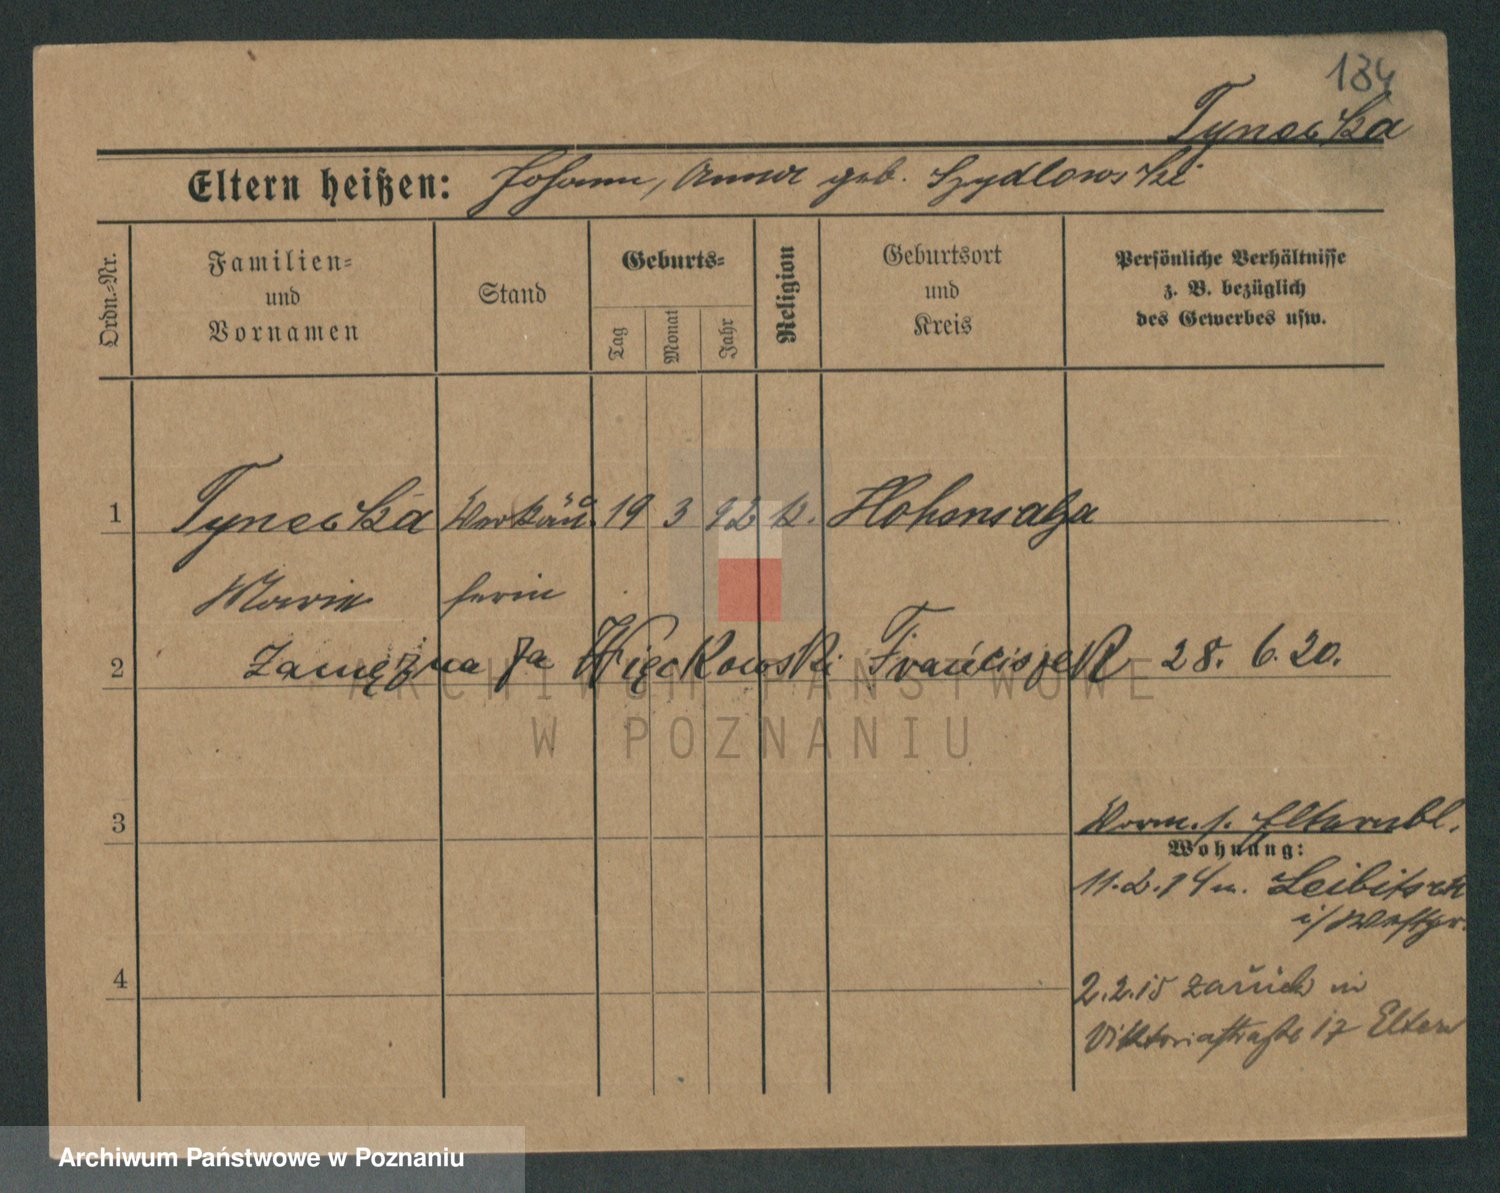 134
Tynecka
Eltern heißen: Johann, Anna geb. Szydlowski
Ordn.-Nr.
Familien-
und
Vornamen
Stand
Geburts-
Tag
Monat
Jahr
Religion
Geburtsort
und
Kreis
Persönliche Verhältnisse
z. B. bezüglich
des Gewerbes usw.
1 Tynecka Verkäu- 19 3 92 k. Hohensalza
Marie ferin
2 Zamężna za Więckowski Franciszek 28. 6. 20.
3
Vorm. s. Elternbl.
Wohnung:
11.2.14 n. Leibitsch
i/Westpr.
4
2.2.15 zurück in
Viktoriastraße 17 Eltern
ARCHIWUM PAŃSTWOWE
W POZNANIU
Archiwum Państwowe w Poznaniu